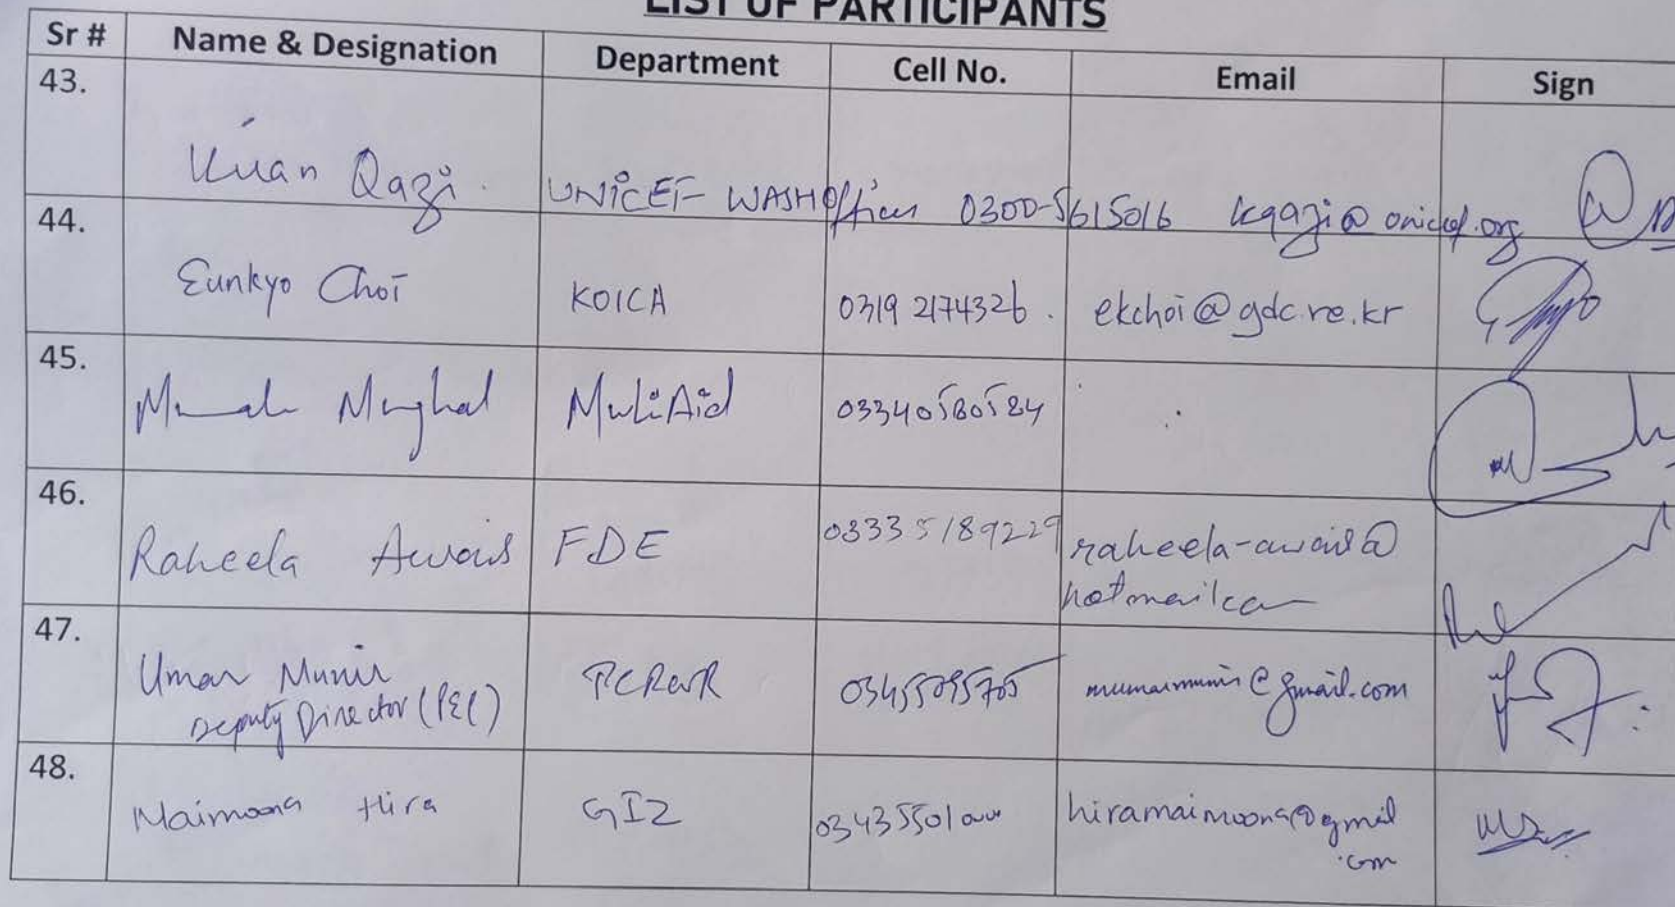 LIST OF PARTICIPANTS
Sr # Name & Designation Department Cell No. Email Sign
43. Qazi. UNICEF WASH Officer 0300-5615016 kqazi@unicef.org
44. Eunkyo Choi KOICA 0319 2174326. ekchoi@gdc.re.kr
45. Mughal 03340580584
46. Raheela Awais FDE 03335189229 raheela-awais@
hotmail.com
47. Umar Munir PCRWR 03455095705 mumarmunir@gmail.com
Deputy Director
48. Maimoona Hira GIZ hiramaimoona@gmail
.com